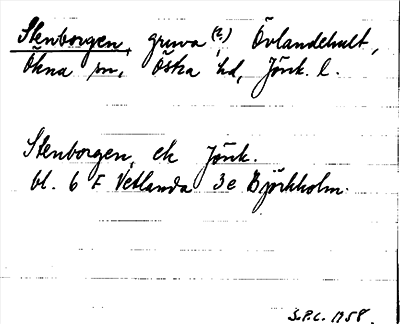 Stenborgen, gruva (?), Övlandehult,
Ökna sn, Östra hd, Jönk. l.
Stenborgen, ek Jönk.
bl. 6 F Vetlanda 3e Björkholm.
S.P.C. 1958.